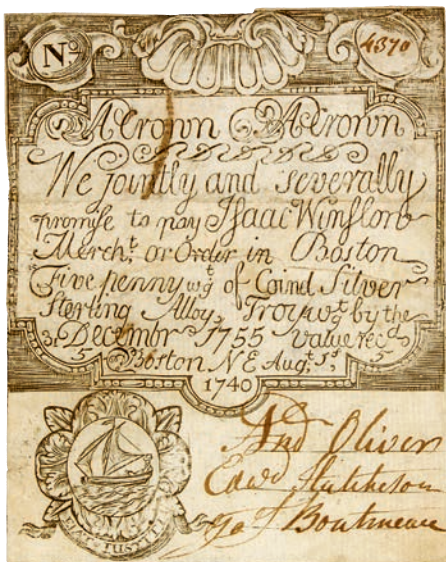 No 4370
A Crown A Crown
We jointly and severally
promise to pay Isaac Winslow
Merch.t or Order in Boston
Five penny w.t of Coind Silver
Sterling Alloy, Troy w.t by the
31 Decembr 1755 value rec.d
5 Boston N E Aug.t 1st, 5
1740
And Oliver
Edwd Hutchinson
Jas Boutineau